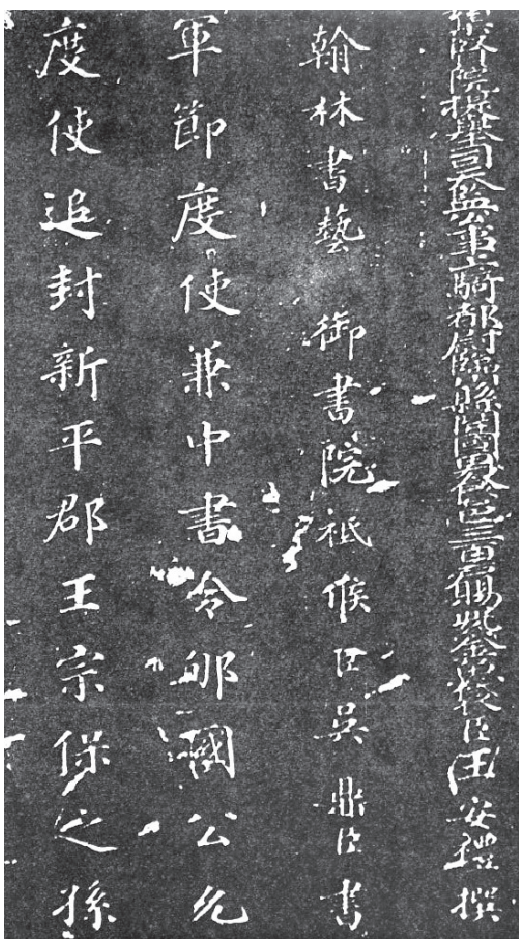 集賢院提舉司天監公事上騎都尉臨川縣開國男食邑三百戶賜紫金魚袋臣王安禮撰
翰林書藝 御書院祇候臣吳鼎臣書
軍節度使兼中書令邠國公允
度使追封新平郡王宗保之孫